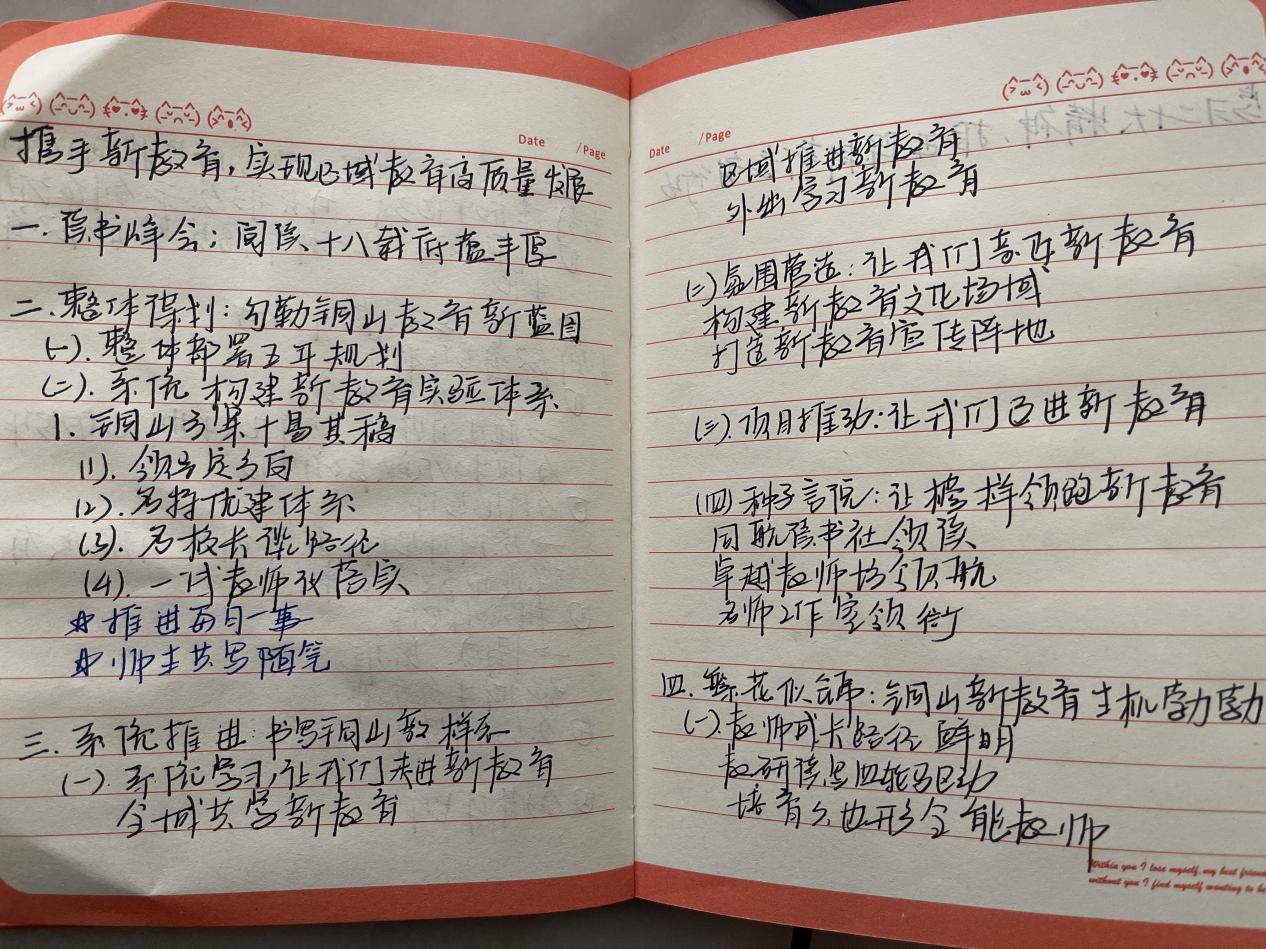 Date /Page
携手新教育,实现区域教育高质量发展
一.读书峰会:阅读十八载底蕴丰厚
二.整体谋划:勾勒铜山教育新蓝图
(一).整体部署五年规划
(二).系统构建新教育实验体系
1.铜山方案十易其稿
(1).领导定方向
(2).名特优建体系
(3).名校长谈路径
(4).一线教师议落实
☆推进每月一事
☆师生共写随笔
三.系统推进:书写铜山教样态
(一).系统学习,让我们走进新教育
全域共学新教育
Date /Page
区域推进新教育
外出学习新教育
(二)氛围营造:让我们亲近新教育
构建新教育文化场域
打造新教育宣传阵地
(三).项目推动:让我们迈进新教育
(四)种子言说:让榜样领跑新教育
同航读书社领读
卓越教师坊领航
名师工作室领衔
四.繁花似锦:铜山新教育生机勃勃
(一).教师成长路径鲜明
教研读写四轮驱动
培育六边形全能教师
Within you I lose myself, my best friend
without you I find myself wanting to be